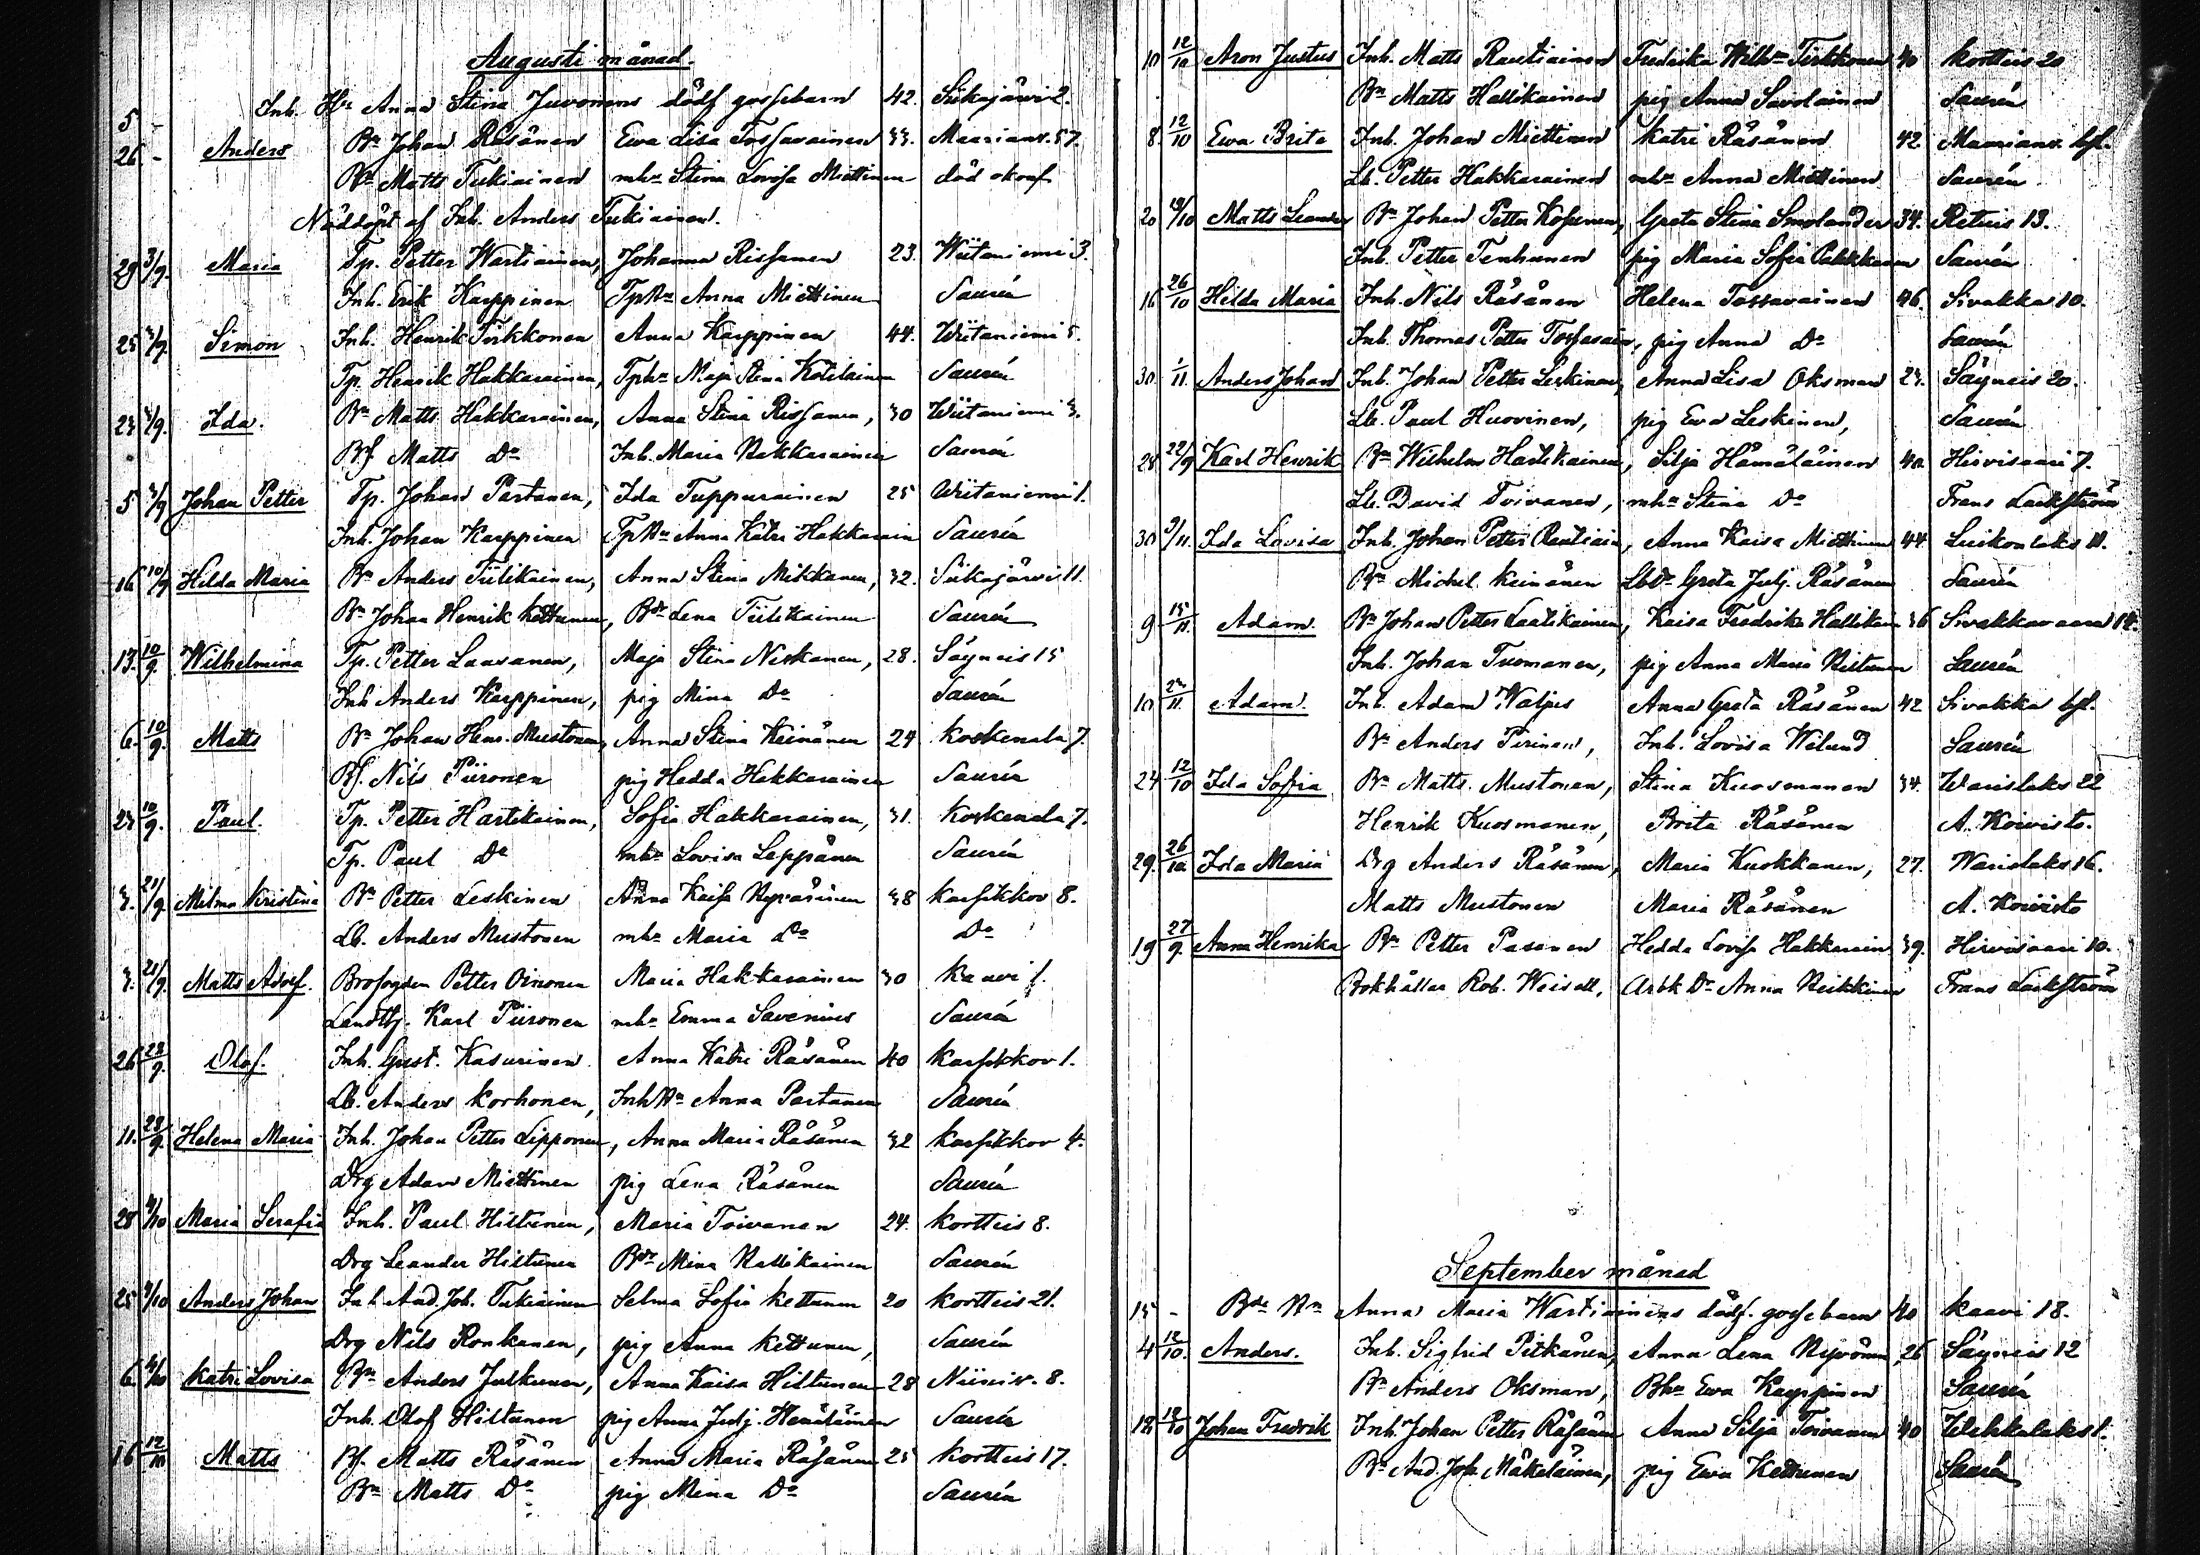 Augusti månad.
5 - Inh. Hu Anna Stina Juvonens dödf gossebarn 42. Siikajärvi 2.
26 - Anders Bn Johan Räsänen Ewa Lisa Tossavainen 33. Maarianv. 57.
Bn Matts Tukiainen mhu Stina Lovisa Miettinen död okonf
Nöddöpt af Inh. Anders Tukiainen.
29 3/9. Maria Tp. Petter Wartiainen, Johanna Rissanen 23. Wiitaniemi 3.
Inh. Erik Karppinen Tphu Anna Miettinen Saurén
25 3/9. Simon Inh. Henrik Tirkkonen Anna Karppinen 44. Wiitaniemi 5.
Tp. Henrik Hakkarainen, Tphu Maja Stina Kotilainen Saurén
23 3/9. Ida. Bn Matts Hakkarainen, Anna Stina Rissanen, 30 Wiitaniemi 3.
Bf Matts Do Inh. Maria Hakkarainen Saurén
5 3/9 Johan Petter Tp. Johan Partanen, Ida Tuppurainen 25 Wiitaniemi 1.
Inh. Johan Karppinen Tphu Anna Katri Hakkarain Saurén
16 10/9 Hilda Maria Bn Anders Tiilikainen, Anna Stina Mikkanen, 32. Siikajärvi 11.
Bn Johan Henrik Kettunen, Bdr Lena Tiilikainen Saurén
13. 10/9. Wilhelmina Tp. Petter Laasanen, Maja Stina Niskanen, 28. Säyneis 15
Inh Anders Karppinen, pig Mina Do Saurén
6. 10/9. Matts Bn Johan Henr. Mustonen, Anna Stina Keinänen 24 Koskenala 7.
Bf. Nils Piironen pig Hedda Hakkarainen Saurén
23 10/9. Paul. Tp. Petter Hartikainen, Sofia Hakkarainen, 31. Koskenala 7.
Tp. Paul Do mhu Lovisa Leppänen Saurén
3. 21/9. Milma Kristina Bn Petter Leskinen Anna Kaisa Repväinen 38 Karsikkov 8.
Lb. Anders Mustonen mhu Maria Do Do
3. 21/9. Matts Adolf. Brofogden Petter Oinonen Maria Hakkarainen 30 Kaavi 1.
Landtbj. Karl Piironen mhu Emma Savenius Saurén
26 28/9. Olof. Inh. Gust. Kasurinen Anna Katri Räsänen 40 Karsikkov 1.
Lb. Anders Korhonen, Inh hu Anna Partanen Saurén
11. 28/9. Helena Maria Inh. Johan Petter Lipponen, Anna Maria Räsänen 32 Karsikkov 4.
Drg Adam Miettinen pig Lena Räsänen Saurén
28 4/10 Maria Serafia Inh. Paul Hiltunen, Maria Toivanen 24. Kortteis 8.
Drg Leander Hiltunen Bdr Mina Hallikainen Saurén
25 4/10 Anders Johan Inh And. Joh. Tukiainen Selma Sofia Kettunen 20 Kortteis 21.
Drg Nils Ronkanen, pig Anna Kettunen, Saurén
6. 4/10 Katri Lovisa Bn Anders Julkunen, Anna Kaisa Hiltunen 28 Niiniv. 8.
Inh. Olof Hiltunen pig Anna Julj. Heinäläinen Saurén
16 12/10 Matts Bf. Matts Räsänen Anna Maria Räsänen 25 Kortteis 17.
Bn Matts Do pig Mina Do Saurén
10 12/10 Aron Justus Inh. Matts Rautiainen Fredrika Wilhna Tirkkonen 40 Kortteis 20
Bn Matts Hallikainen pig Anna Savolainen Saurén
8. 12/10 Ewa Brita Inh. Johan Miettinen Katri Räsänen 42. Maarianv. bfl.
Lb. Petter Hakkarainen mhu Anna Miettinen Saurén
20 18/10 Matts Leander Bn Johan Petter Kosunen, Greta Stina Smolander 34. Retuis 13.
Inh. Petter Tenhunen pig Maria Sofia Pakkanen Saurén
16 26/10 Hilda Maria Inh. Nils Räsänen Helena Tossavainen 46. Sivakka 10.
Inh. Thomas Petter Tossavain, pig Anna Do Saurén
30. 1/11. Anders Johan Inh. Johan Petter Leskinen, Anna Lisa Oksman 23. Säyneis 20.
Lb. Paul Huovinen, pig Ewa Leskinen, Saurén
28 22/9 Karl Henrik Bn Wilhelm Hartikainen, Silja Hämäläinen 40. Hirvisaari 7.
Lb. David Toivanen, mhu Stina Do Frans Lackström
30 9/11. Ida Lovisa Inh. Johan Petter Rautiain, Anna Kaisa Miettinen 44. Luikonlaks 11.
Bn Michel Keinänen Lbdr Greta Julj. Räsänen Saurén
9 15/11. Adam. Bn Johan Petter Laatikainen, Kaisa Fredrika Hallikain 36 Sivakkavaara 14.
Inh. Johan Tuomanen, pig Anna Maria Hiltunen Saurén
10 23/11. Adam. Inh. Adam Walpis Anna Greta Räsänen 42 Sivakka bfl.
Bn Anders Pirinen, Inh. Lovisa Wilund Saurén
24 12/10 Ida Sofia Bn Matts Mustonen, Stina Kuosmanen 34. Warislaks 22
Henrik Kuosmanen, Brita Räsänen A. Koivisto.
29. 26/10. Ida Maria Drg Anders Räsänen, Maria Kuokkanen, 27. Warislaks 16.
Matts Mustonen Maria Räsänen A. Koivisto
19 27/9. Anna Henrika Bn Petter Pasanen Hedda Lovisa Hakkarain 39. Hirvisaari 10.
Bokhållar Rob. Weisell, Arbk Dr Anna Heikkinen Frans Lackström
September månad
15 - Bdr Hu Anna Maria Wartiainens dödf. gossebarn 40 Kaavi 18.
4 12/10. Anders. Inh. Sigfrid Pitkänen, Anna Lena Ryönen, 26 Säyneis 12
Bn Anders Oksman, Bhu Ewa Karppinen Saurén
12. 12/10 Johan Fredrik Inh. Johan Petter Räsänen Anna Silja Toivanen 40 Telehkalaks 1.
Bn And. Joh. Mäkeläinen, pig Ewa Kettunen Saurén